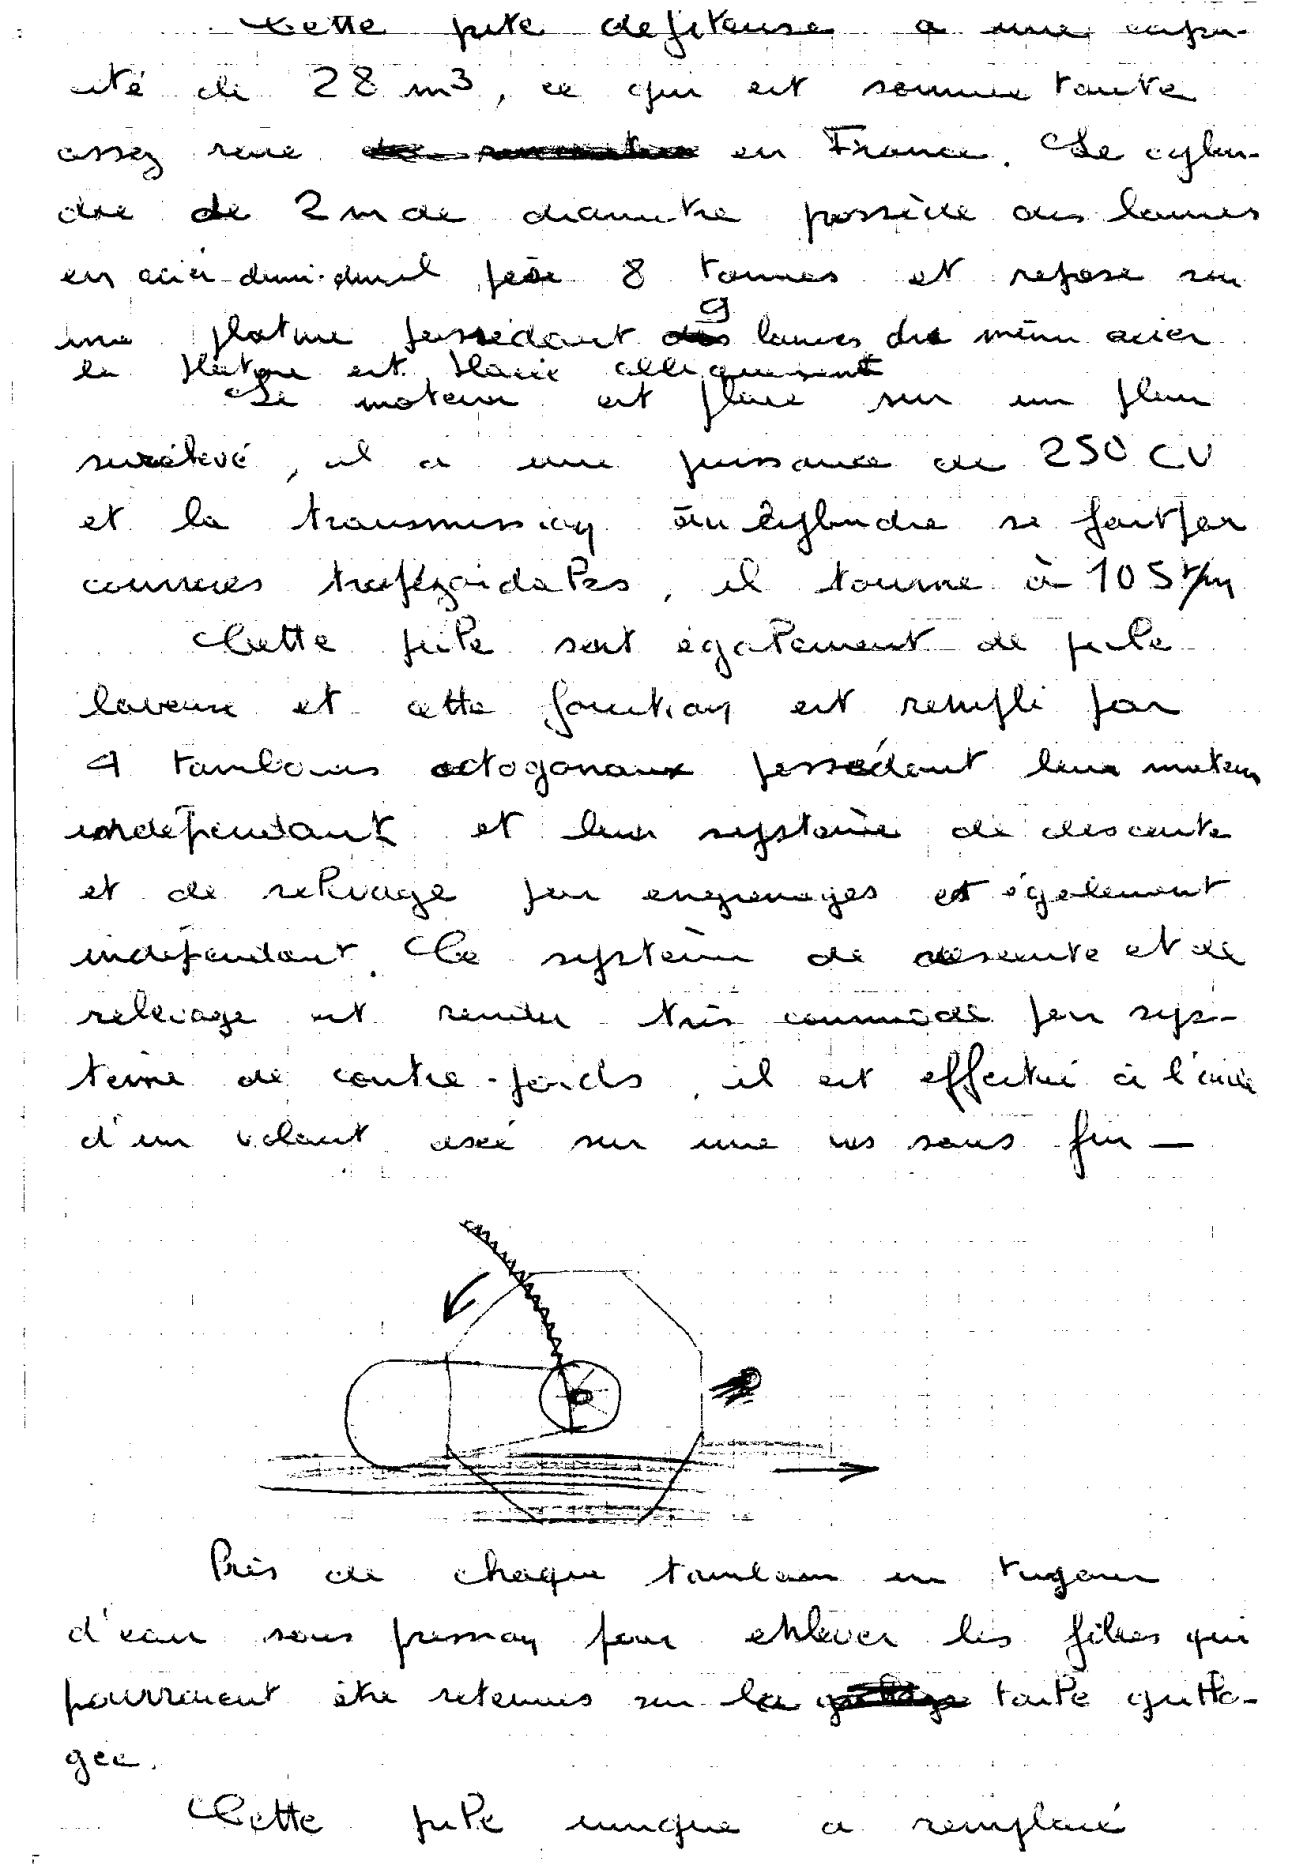 Cette pile défileuse a une capa-
cité de 28 m3, ce qui est somme toute
assez rare en France. Le cylin-
dre de 2 m de diamètre possède des lames
en acier demi-dur il pèse 8 tonnes et repose sur
une platine possédant 9 lames du même acier
la platine est placée obliquement
Le moteur est placé sur un plan
surélevé, il a une puissance de 250 CV
et la transmission au cylindre se fait par
courroies trapézoidales, il tourne à 105 t/m
Cette pile sert également de pile
laveuse et cette fonction est rempli par
4 tambours octogonaux possédant leur moteur
indépendant et leur système de descente
et de relevage par engrenages est également
indépendant. Ce système de descente et de
relevage est rendu très commode par sys-
tème de contre-poids, il est effectué à l'aide
d'un volant axé sur une vis sans fin —
Près de chaque tambour un tuyau
d'eau sous pression pour enlever les fibres qui
pourraient être retenues sur la toile grilla-
gée.
Cette pile unique a remplacé